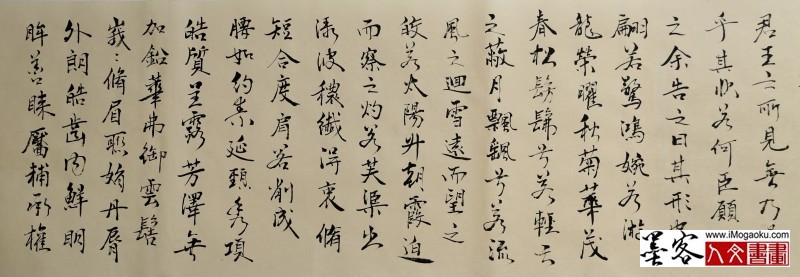 君王之所見無乃
乎其狀若何臣願
之余告之曰其形也
翩若驚鴻婉若游
龍榮曜秋菊華茂
春松髣髴兮若輕云
之蔽月飄飖兮若流
風之迴雪遠而望之
皎若太陽升朝霞迫
而察之灼若芙渠出
淥波穠纖得衷脩
短合度肩若削成
腰如約素延頸秀項
皓質呈露芳澤無
加鉛華弗御雲髻
峩〻脩眉聯娟丹脣
外朗皓齒內鮮明
眸善睞靨輔承權
墨客
www.iMogaoku.com
人文書畫